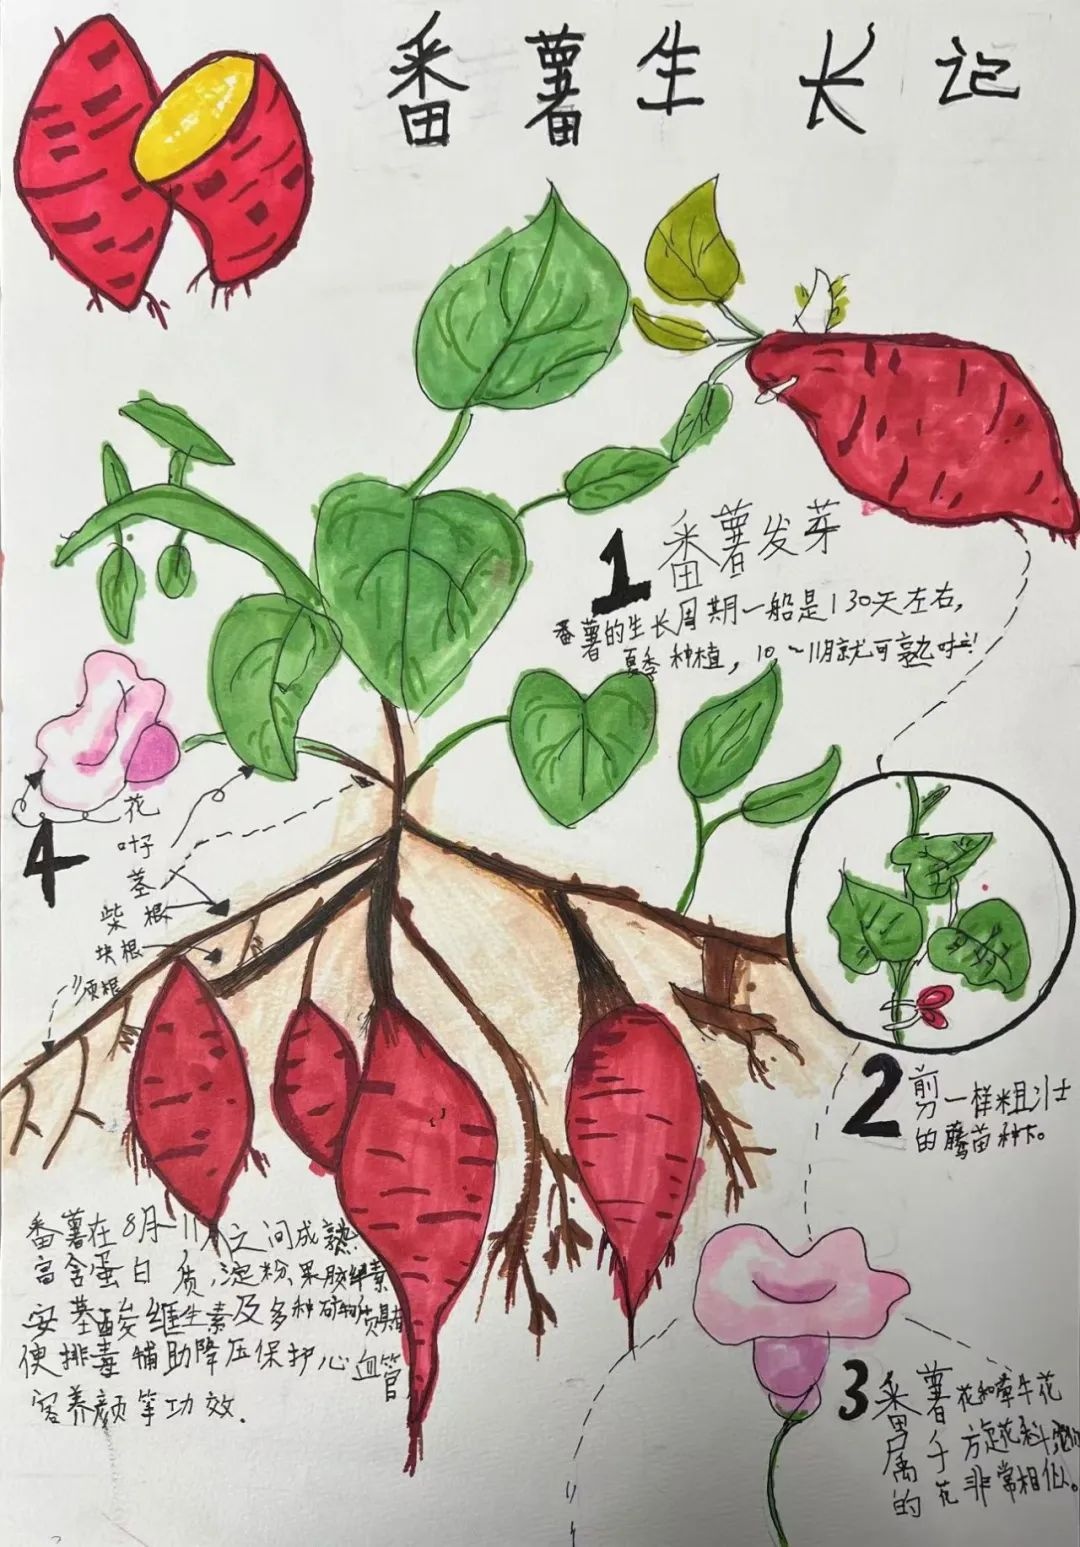 番薯生长记
1 番薯发芽
番薯的生长周期一般是130天左右,
夏季种植，10~11月就可熟啦!
花
4
叶子
茎
柴根
块根
须根
2 剪一样粗壮
的藤苗种下。
番薯在8月-11月之间成熟
富含蛋白质,淀粉、果胶纤维素
安基酸维生素及多种矿物质
便排毒辅助降压保护心血管
容养颜等功效.
3 番薯花和牵牛花
属于方旋花科
的花非常相似。